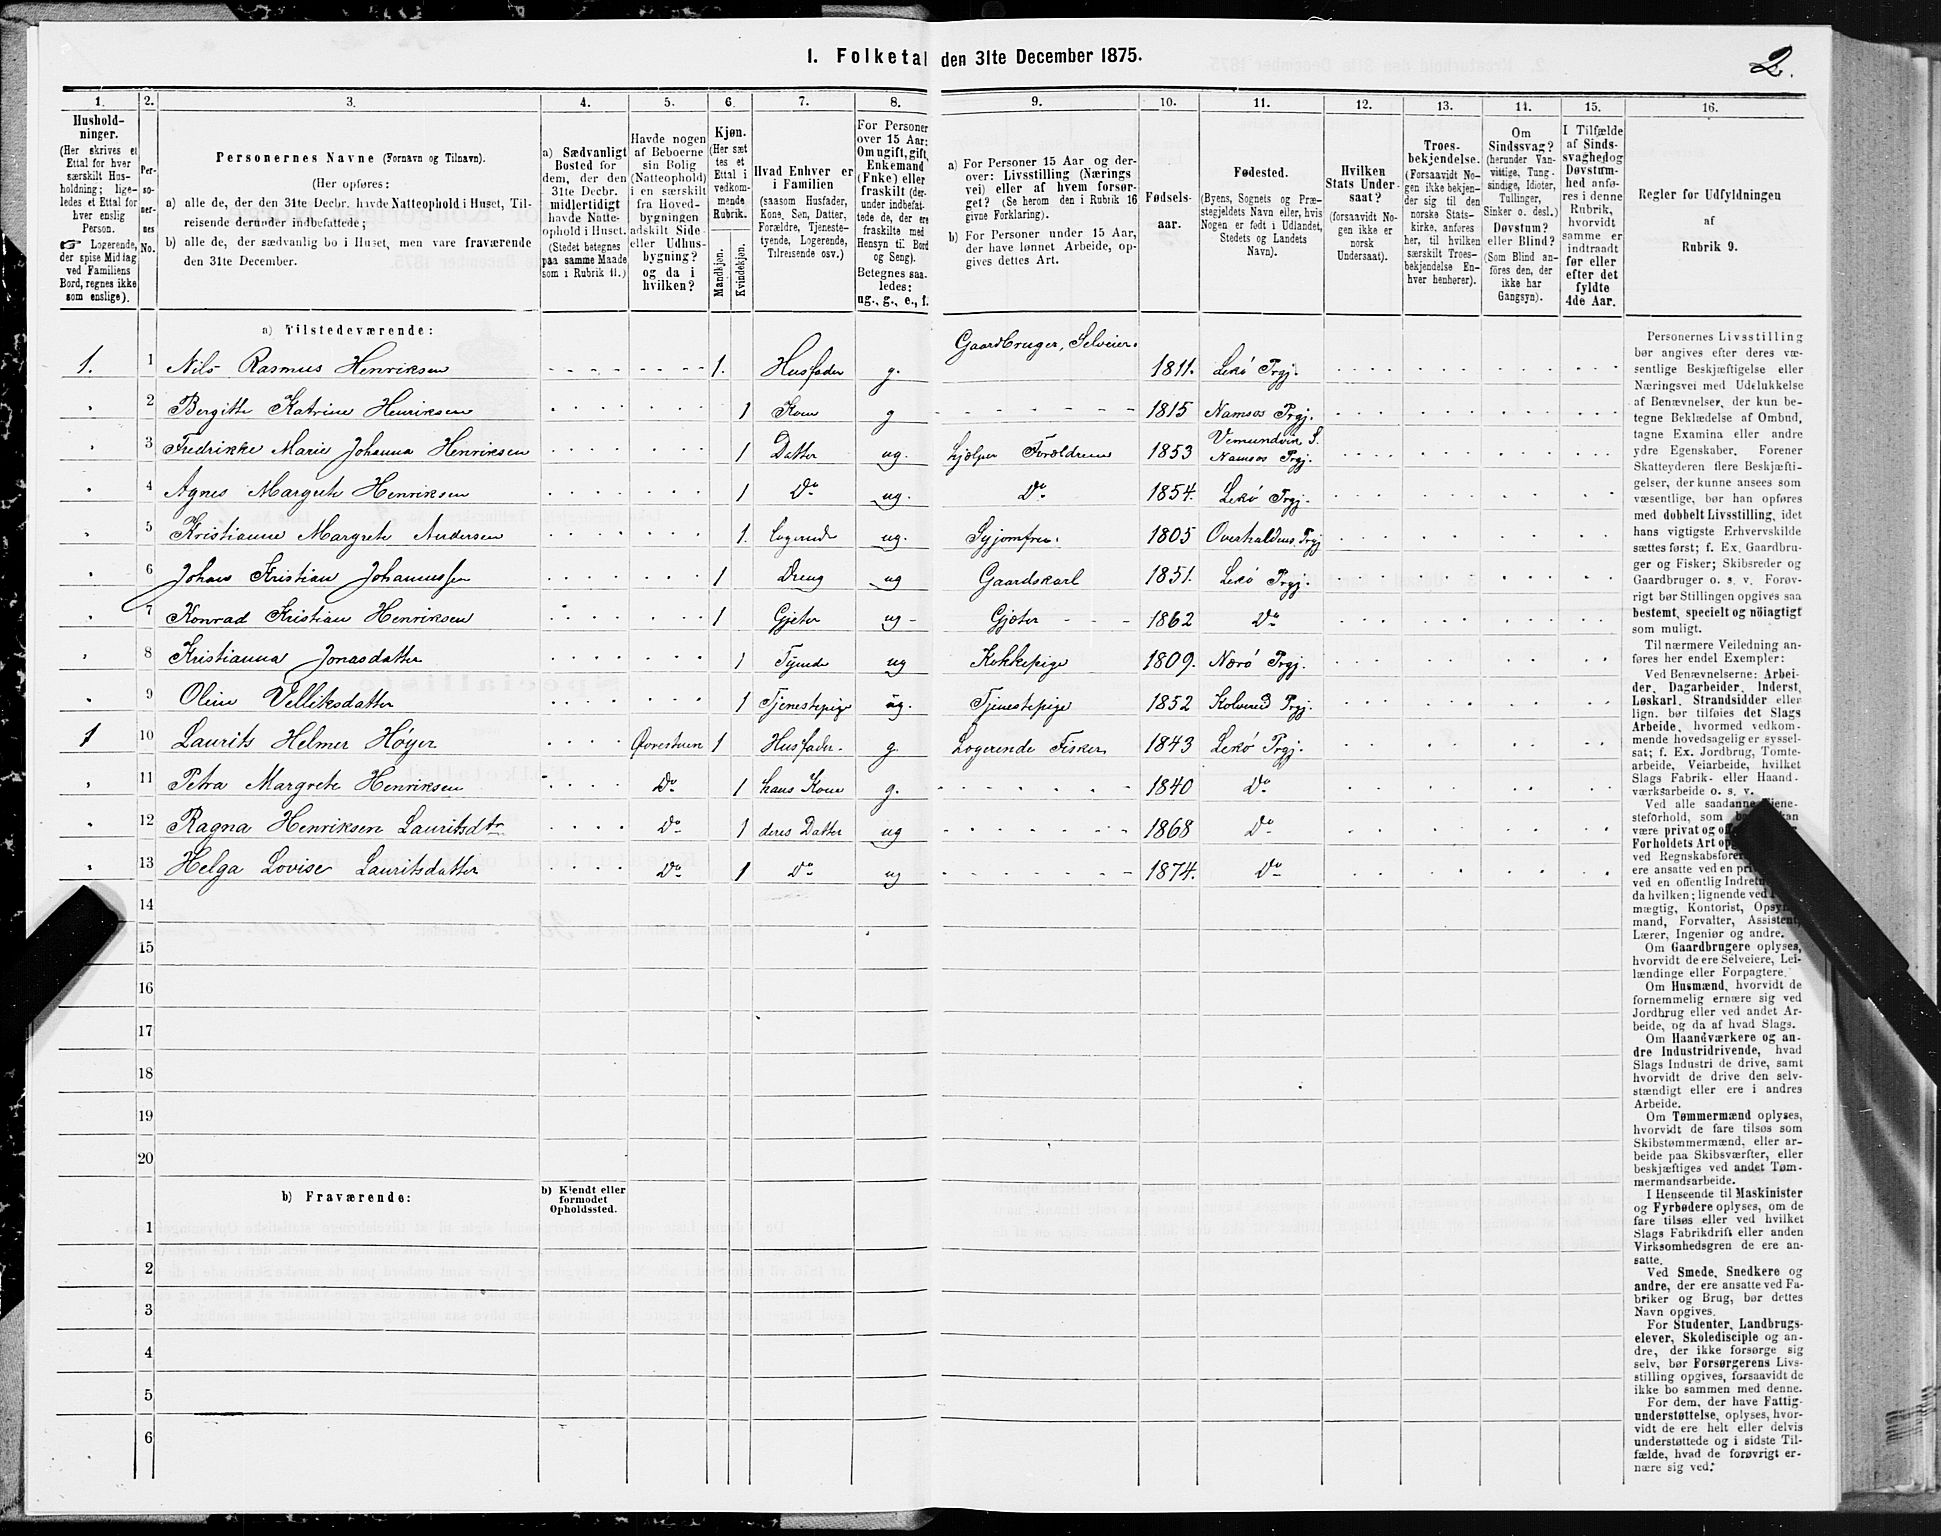 1. Folketal den 31te December 1875.
2.
1. 2. 3. 4. 5. 6. 7. 8. 9. 10. 11. 12. 13. 14. 15. 16.
Hushold-
ninger.
(Her skrives et
Ettal for hver
særskilt Hus-
holdning; lige-
ledes et Ettal for
hver enslig
Person.
☞ Logerende,
der spise Middag
ved Familiens
Bord, regnes ikke
som enslige).
Per-
so-
ner-
nes
No.
Personernes Navne (Fornavn og Tilnavn).
(Her opføres:
a) alle de, der den 31te Decbr. havde Natteophold i Huset, Til-
reisende derunder indbefattede;
b) alle de, der sædvanlig bo i Huset, men vare fraværende
den 31te December.
a) Sædvanligt
Bosted for
dem, der den
31te Decbr.
midlertidigt
havde Natte-
ophold i Huset.
(Stedet betegnes
paa samme Maade
som i Rubrik 11.)
Havde nogen
af Beboerne
sin Bolig
(Natteophold)
i en særskilt
fra Hoved-
bygningen
adskilt Side-
eller Udhus-
bygning?
og da i
hvilken?
Kjøn.
(Her sæt-
tes et
Ettal i
vedkom-
mende
Rubrik.
Mandkjøn.
Kvindekjøn.
Hvad Enhver er
i Familien
(saasom Husfader,
Kone, Søn, Datter,
Forældre, Tjeneste-
tyende, Logerende,
Tilreisende osv.)
For Personer
over 15 Aar:
Om ugift, gift,
Enkemand
(Enke) eller
fraskilt (der-
under indbefat-
tede de, der ere
fraskilte med
Hensyn til Bord
og Seng).
Betegnes saa-
ledes:
ug., g., e., f.
a) For Personer 15 Aar og der-
over: Livsstilling (Nærings
vei) eller af hvem forsør-
get? (Se herom den i Rubrik 16
givne Forklaring).
b) For Personer under 15 Aar,
der have lønnet Arbeide, op-
gives dettes Art.
Fødsels-
aar.
Fødested.
(Byens, Sognets og Præ-
stegjeldets Navn eller, hvis
Nogen er født i Udlandet,
Stedets og Landets
Navn).
Hvilken
Stats Under-
saat?
(forsaavidt No-
gen ikke er
norsk
Undersaat).
Troes-
bekjendelse.
(Forsaavidt No-
gen ikke bekjen-
der sig til den
norske Stats-
kirke, anføres
her, til hvilken
særskilt Troes-
bekjendelse En-
hver henhører).
Om
Sindssvag?
(herunder Van-
vittige, Tung-
sindige, Idioter,
Tullinger,
Sinker o. desl.)
Døvstum?
eller Blind?
(Som Blind an-
føres den, der
ikke har
Gangsyn).
I Tilfælde
af Sinds-
svaghed og
Døvstum-
hed anfø-
res i denne
Rubrik,
hvorvidt
samme er
indtraadt
før eller
efter det
fyldte
4de Aar.
Regler for Udfyldningen
af
Rubrik 9.
a) Tilstedeværende:
1. 1 Nils Rasmus Henriksen 1. Husfader g. Gaardbruger, Selveier. 1811. Lekø Prgj.
2 Bergitte Katrine Henriksen 1 Kone g 1815 Namsos Prgj.
3 Fredrikke Marie Johanna Henriksen 1 Datter ug. hjælper Forældrene 1853 Vemundvik S. Namsos Prgj.
4 Agnes Margrete Henriksen 1 Do ug. Do 1854. Lekø Prgj.
5 Kristianne Margrete Andersen 1. Logerende ug. Syjomfru. 1805 Overhaldens Prgj
6 Johans Kristian Johannessen 1 Dreng ug Gaardskarl 1851. Lekø Prgj.
7 Konrad Kristian Henriksen 1 Gjeter ug Gjæter 1862 Do
8 Kristianna Jonasdatter 1 Tyende ug Kokkepige 1809. Nærø Prgj.
9 Oline Velliksdatter 1 Tjenestepige ug. Tjenestepige 1852 Kolvereid Prgj.
1 10 Laurits Helmer Höyer Øvrestuen 1 Husfader g. Logerende Fisker 1843 Lekø Prgj.
11 Petra Margrete Henriksen Do 1 hans Kone g. 1840 Do
12 Ragna Henriksen Lauritsdtr Do 1 deres Datter ug 1868 Do
13 Helga Lovise Lauritsdatter Do 1 Do ug 1874. Do
14
15
16
17
18
19
20
b) Fraværende:
b) Kjendt eller
formodet
Opholdssted.
1
2
3
4
5
6
Personernes Livsstilling
bør angives efter deres væ-
sentlige Beskjæftigelse eller
Næringsvei med Udelukkelse
af Benævnelser, der kun be-
tegne Beklædelse af Ombud,
tagne Examina eller andre
ydre Egenskaber. Forener
Skatteyderen flere Beskjæfti-
gelser, der kunne ansees som
væsentlige, bør han opføres
med dobbelt Livsstilling, idet
hans vigtigste Erhvervskilde
sættes først; f. Ex. Gaardbru-
ger og Fisker; Skibsreder og
Gaardbruger o. s. v. Forøv-
rigt bør Stillingen opgives saa
bestemt, specielt og nöiagtigt
som muligt.
Til nærmere Veiledning an-
føres her endel Exempler:
Ved Benævnelserne: Arbei-
der, Dagarbeider, Inderst,
Løskarl, Strandsidder eller
lign. bør tilføies det Slags
Arbeide, hvormed vedkom-
mende hovedsagelig er syssel-
sat; f. Ex. Jordbrug, Tomte-
arbeide, Veiarbeide, hvilket
Slags Fabrik- eller Haand-
værksarbeide o. s. v.
Ved alle saadanne
steforhold, som kan
være privat og
Forholdets Art
ved Regnskabsfører
ere ansatte ved en
ved en offentlig
da hvilken; lignende ved
mægtig, Kontorist,
mand, Forvalter, Assistent,
Lærer, Ingeniør og andre.
Om Gaardbrugere oplyses,
hvorvidt de ere Selveiere, Lei-
lændinge eller Forpagtere.
Om Husmænd, hvorvidt de
fornemmelig ernære sig ved
Jordbrug eller ved andet Ar-
beide, og da af hvad Slags.
Om Haandværkere og an-
dre Industridrivende, hvad
Slags Industri de drive, samt
hvorvidt de drive den selv-
stændigt eller ere i andres
Arbeide.
Om Tømmermænd oplyses,
hvorvidt de fare tilsøs som
Skibstømmermænd, eller ar-
beide paa Skibsværfter, eller
beskjæftiges ved andet Tøm-
mermandsarbeide.
I Henseende til Maskinister
og Fyrbødere oplyses, om de
fare tilsøs eller ved hvilket
Slags Fabrikdrift eller anden
Virksomhedsgren de ere an-
satte.
Ved Smede, Snedkere og
andre, der ere ansatte ved Fa-
briker og Brug, bør dettes
Navn opgives.
For Studenter, Landbrugs-
elever, Skoledisciple og an-
dre, der ikke forsørge sig
selv, bør Forsørgerens Livs-
stilling opgives, forsaavidt de
ikke bo sammen med denne.
For dem, der have Fattig-
understøttelse, oplyses, hvor-
vidt de ere helt eller delvis
understøttede og i sidste Til-
fælde, hvad de forøvrigt er-
nære sig ved.